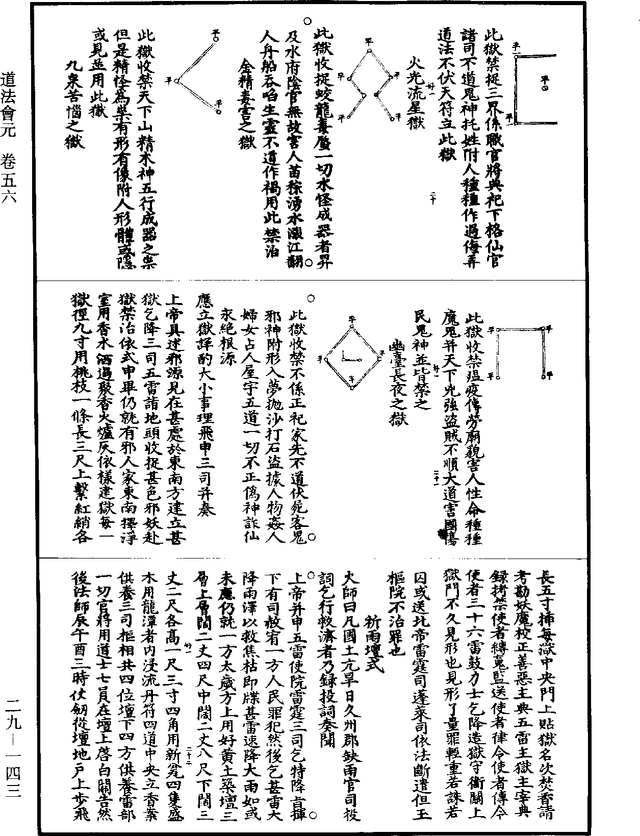 道法會元　卷五六
二九—一四三
平
平
平
此獄禁捉三界係職官將與祀下格仙官
諸司不道鬼神托姓附人種種作過侮弄
道法不伏天符立此獄
火光流星獄
二十
平
平
平
平
平
平
此獄收捉蛟龍毒蜃一切水怪成器者昇
及水府陰官無故害人苗稼湧水潑江翻
人舟船吞啗生靈不道作禍用此禁治
金精毒害之獄
平
平
平
此獄收禁天下山精木神五行成器之祟
但是精怪為祟有形有像附人形體或隱
或見並用此獄
九泉苦惱之獄
平
平
平
平
此獄收禁瘟疫傳勞廟貌害人性命種種
魔鬼并天下兇強盜賊不順大道害國傷
民鬼神並皆禁之
幽臺長夜之獄
二十一
平
平
平
平
此獄收禁不係正祀家先不道伏死客鬼
邪神附形入夢拋沙打石盜據人物姦人
婦女占人屋宇五道一切不正偽神詐仙
永絕根源
應立獄詳酌大小事理飛申三司并奏
上帝具述邪源見在甚處於東南方建立甚
獄乞降三司五雷諸地頭收捉甚色邪妖赴
獄禁治依式申畢仍就有邪人家東南擇淨
室用香水洒過聚香火爐灰依樣建獄每一
獄徑九寸用桃枝一條長三尺上繫紅綃各
長五寸插每獄中央門上貼獄名次焚香請
考勘妖魔校正善惡主典五雷主獄主宰典
錄拷禁使者縛鬼監送使者律令使者傳令
使者三十六雷鼓力士乞降造獄守衛關上
獄門不久見形也見形了量罪輕重若誅若
囚或送北帝雷霆司蓬萊司依法斷遣但玉
樞院不治罪也
祈雨壇式
大師曰凡國土亢旱日久州郡缺雨官司投
詞乞行救濟者乃錄投詞奏聞
上帝并申五雷使院雷霆三司乞特降旨揮
下有司赦宥一方人民罪犯然後乞甚雷大
降雨澤以救焦枯即牒甚雷速降大雨如或
未應仍就一方太歲方上用好黃土築壇三
層上層闊二丈四尺中闊二丈八尺下闊三
二十二
丈二尺各高一尺三寸四角用新瓮四隻盛
水用龍潭者内浸流丹符四道中央立香案
供養三司樞相共四位壇下四方供養雷部
一切官將用道士七員在壇上啓白關告然
後法師辰午酉三時仗劒從壇地戶上步飛